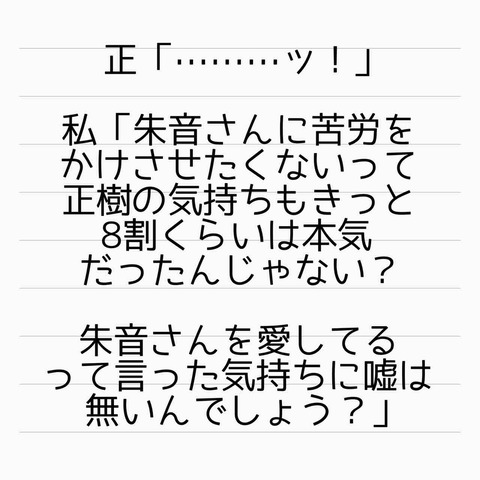 正「………ッ！」
私「朱音さんに苦労を
かけさせたくないって
正樹の気持ちもきっと
8割くらいは本気
だったんじゃない？
朱音さんを愛してる
って言った気持ちに嘘は
無いんでしょう？」